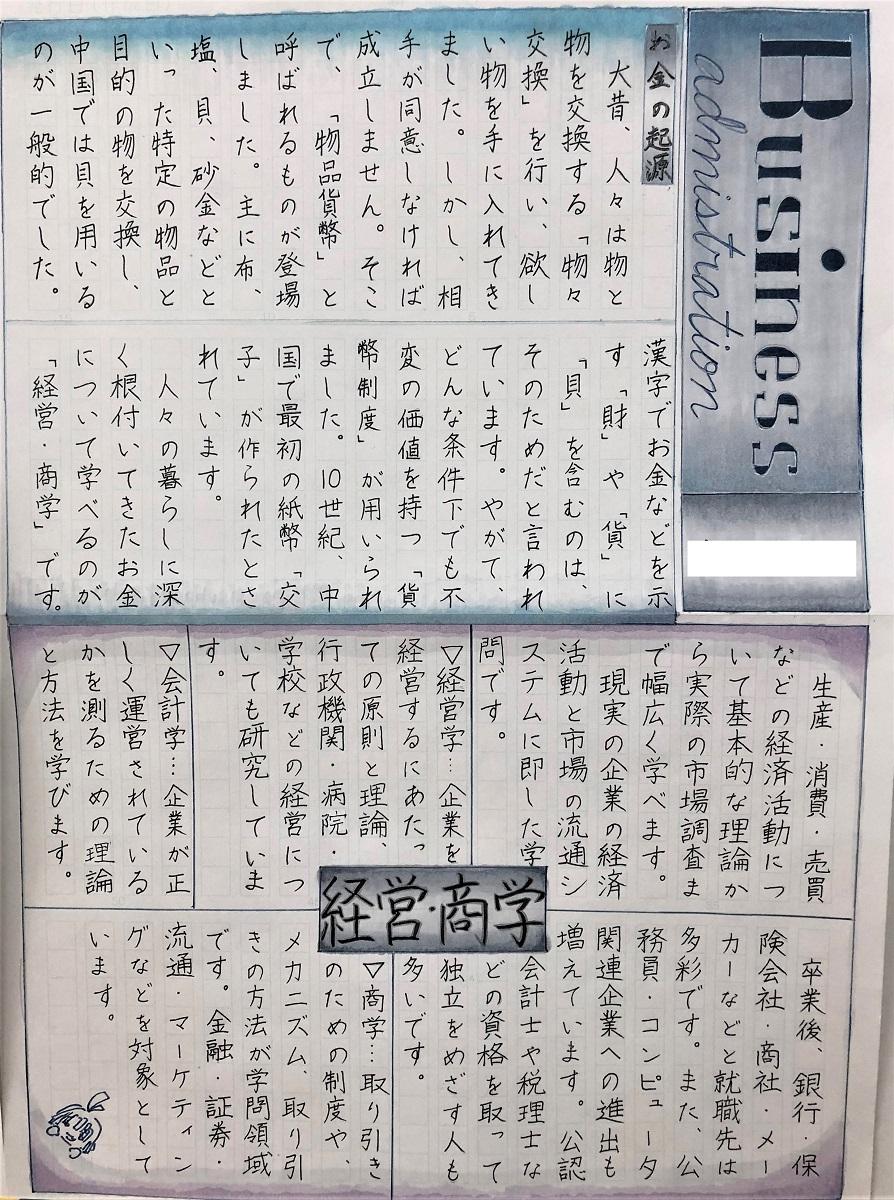 Business
admistration
お金の起源
　大昔、人々は物と
物を交換する「物々
交換」を行い、欲し
い物を手に入れてき
ました。しかし、相
手が同意しなければ
成立しません。そこ
で、「物品貨幣」と
呼ばれるものが登場
しました。主に布、
塩、貝、砂金などと
いった特定の物品と
目的の物を交換し、
中国では貝を用いる
のが一般的でした。
漢字でお金などを示
す「財」や「貨」に
「貝」を含むのは、
そのためだと言われ
ています。やがて、
どんな条件下でも不
変の価値を持つ「貨
幣制度」が用いられ
ました。10世紀、中
国で最初の紙幣「交
子」が作られたとさ
れています。
　人々の暮らしに深
く根付いてきたお金
について学べるのが
「経営・商学」です。
経営・商学
　生産・消費・売買
などの経済活動につ
いて基本的な理論か
ら実際の市場調査ま
で幅広く学べます。
　現実の企業の経済
活動と市場の流通シ
ステムに即した学
問です。
▽経営学…企業を
経営するにあたっ
ての原則と理論、
行政機関・病院・
学校などの経営につ
いても研究していま
す。
▽会計学…企業が正
しく運営されている
かを測るための理論
と方法を学びます。
　卒業後、銀行・保
険会社・商社・メー
カーなどと就職先は
多彩です。また、公
務員・コンピュータ
関連企業への進出も
増えています。公認
会計士や税理士な
どの資格を取って
独立をめざす人も
多いです。
▽商学…取り引き
のための制度や、
メカニズム、取り引
きの方法が学問領域
です。金融・証券・
流通・マーケティン
グなどを対象として
います。